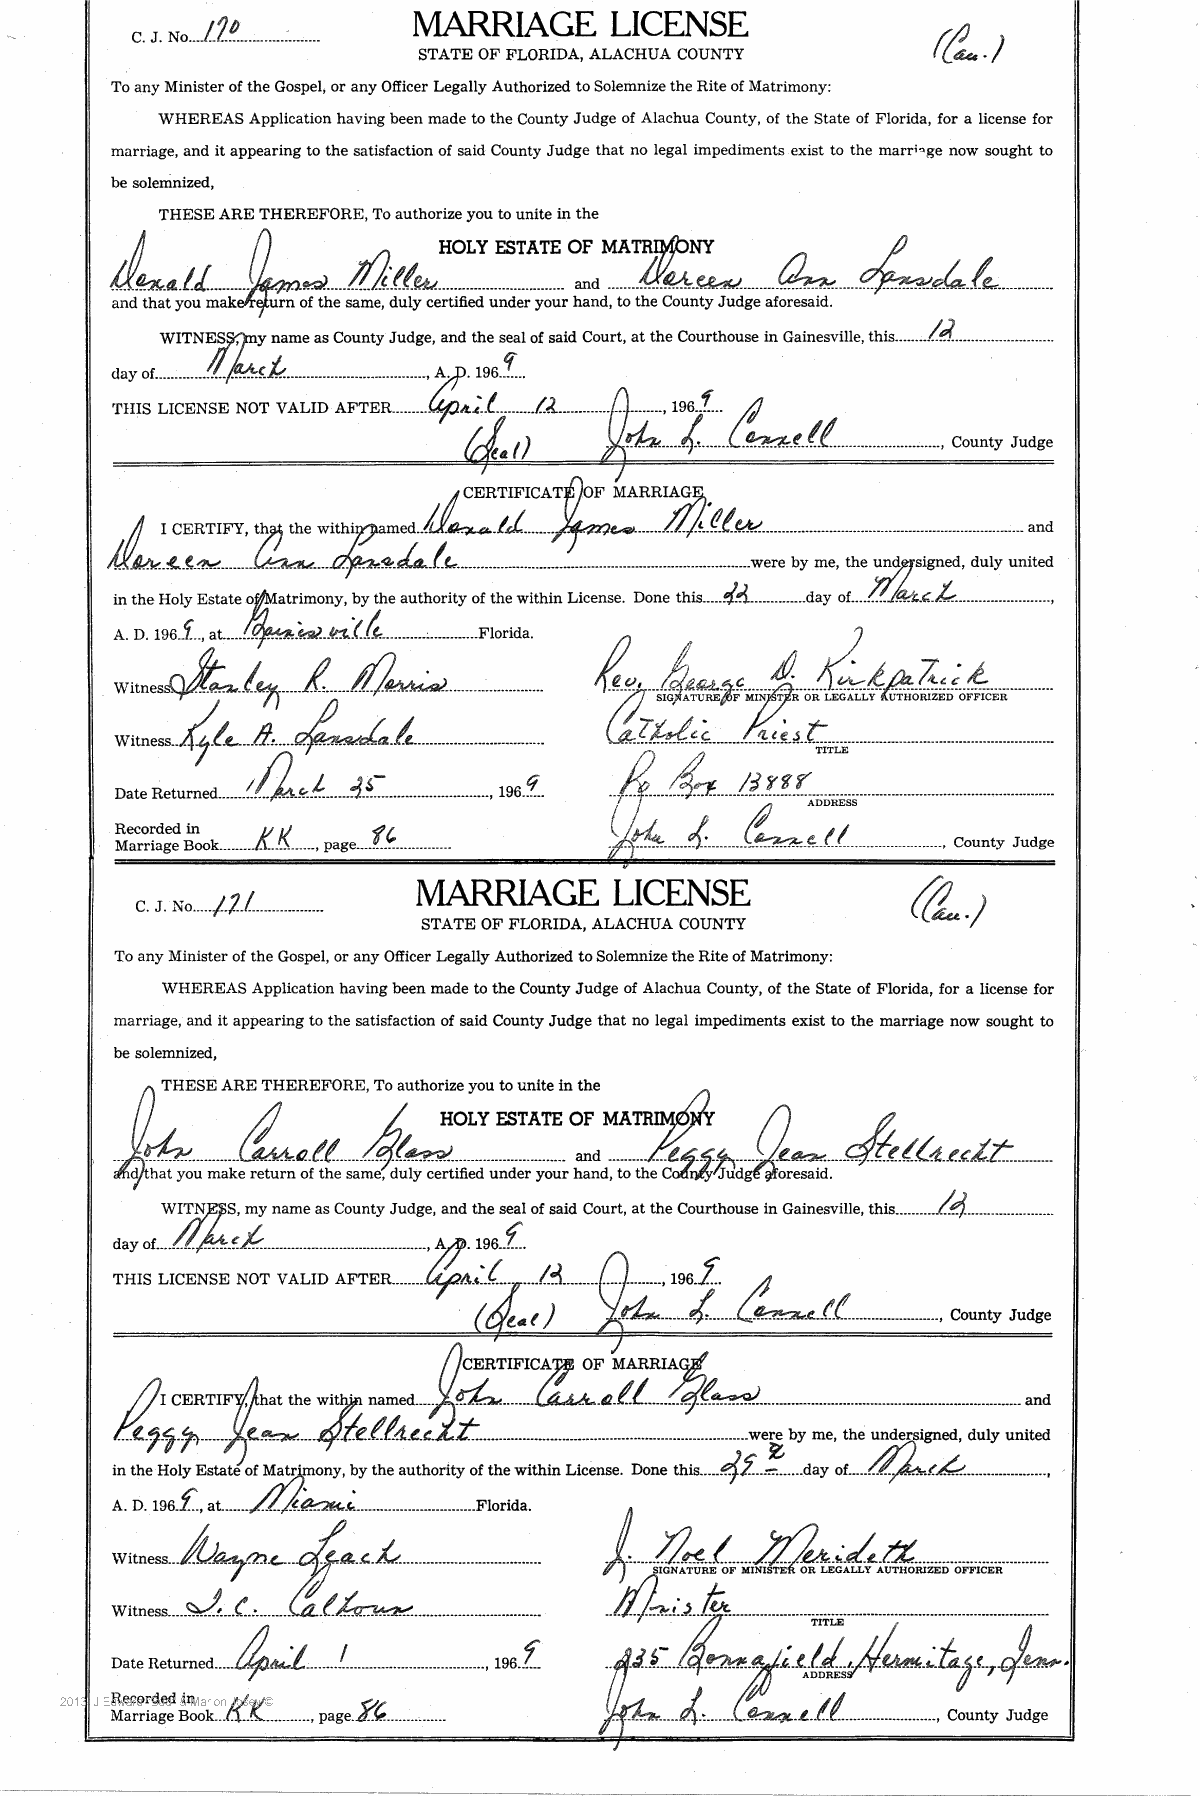 C. J. No. 170
MARRIAGE LICENSE
STATE OF FLORIDA, ALACHUA COUNTY
(Cau.)
To any Minister of the Gospel, or any Officer Legally Authorized to Solemnize the Rite of Matrimony:
WHEREAS Application having been made to the County Judge of Alachua County, of the State of Florida, for a license for
marriage, and it appearing to the satisfaction of said County Judge that no legal impediments exist to the marriage now sought to
be solemnized,
THESE ARE THEREFORE, To authorize you to unite in the
HOLY ESTATE OF MATRIMONY
Donald James Miller and Doreen Ann Lansdale
and that you make return of the same, duly certified under your hand, to the County Judge aforesaid.
WITNESS, my name as County Judge, and the seal of said Court, at the Courthouse in Gainesville, this 12
day of March, A. D. 1969
THIS LICENSE NOT VALID AFTER April 12, 1969
(Seal) John L. Connell, County Judge
CERTIFICATE OF MARRIAGE
I CERTIFY, that the within named Donald James Miller and
Doreen Ann Lansdale were by me, the undersigned, duly united
in the Holy Estate of Matrimony, by the authority of the within License. Done this 22 day of March,
A. D. 1969, at Gainesville Florida.
Witness Stanley R. Morris Rev. George D. Kirkpatrick
SIGNATURE OF MINISTER OR LEGALLY AUTHORIZED OFFICER
Witness Kyle A. Lansdale Catholic Priest
TITLE
Date Returned March 25, 1969 Po Box 13888
ADDRESS
Recorded in
Marriage Book KK, page 86 John L. Connell, County Judge
C. J. No. 171
MARRIAGE LICENSE
STATE OF FLORIDA, ALACHUA COUNTY
(Cau.)
To any Minister of the Gospel, or any Officer Legally Authorized to Solemnize the Rite of Matrimony:
WHEREAS Application having been made to the County Judge of Alachua County, of the State of Florida, for a license for
marriage, and it appearing to the satisfaction of said County Judge that no legal impediments exist to the marriage now sought to
be solemnized,
THESE ARE THEREFORE, To authorize you to unite in the
HOLY ESTATE OF MATRIMONY
John Carroll Glass and Peggy Jean Stellrecht
and that you make return of the same, duly certified under your hand, to the County Judge aforesaid.
WITNESS, my name as County Judge, and the seal of said Court, at the Courthouse in Gainesville, this 12
day of March, A. D. 1969
THIS LICENSE NOT VALID AFTER April 12, 1969
(Seal) John L. Connell, County Judge
CERTIFICATE OF MARRIAGE
I CERTIFY, that the within named John Carroll Glass and
Peggy Jean Stellrecht were by me, the undersigned, duly united
in the Holy Estate of Matrimony, by the authority of the within License. Done this 29 day of March,
A. D. 1969, at Miami Florida.
Witness Wayne Leach J. Noel Merideth
SIGNATURE OF MINISTER OR LEGALLY AUTHORIZED OFFICER
Witness I. C. Calhoun Minister
TITLE
Date Returned April 1, 1969 235 Bonnafield, Hermitage, Tenn.
ADDRESS
Recorded in
Marriage Book KK, page 86 John L. Connell, County Judge